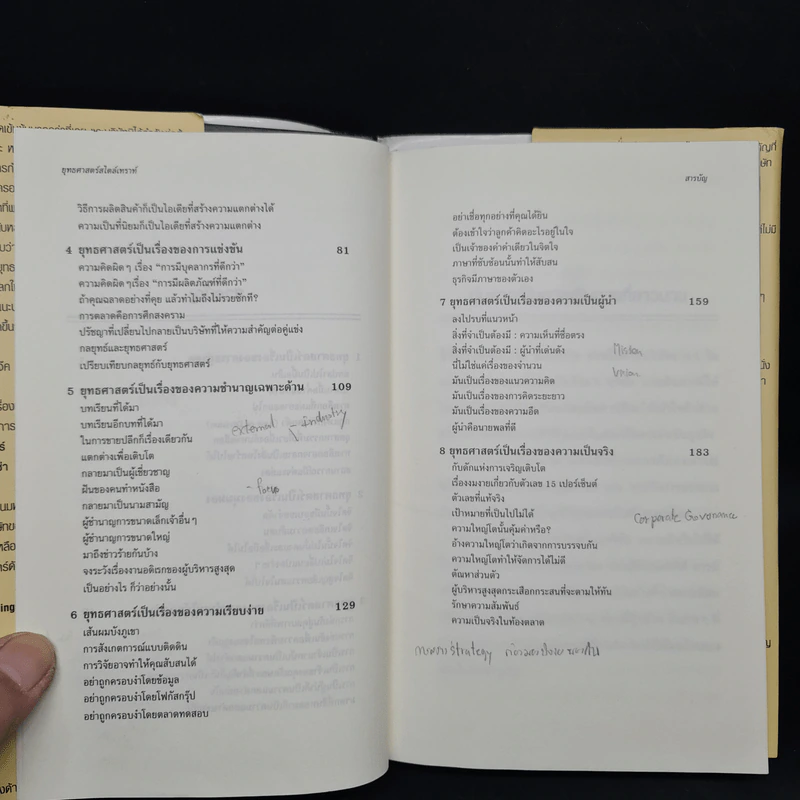 ยุทธศาสตร์สไตล์เทราท์
วิธีการผลิตสินค้าก็เป็นไอเดียที่สร้างความแตกต่างได้
ความเป็นที่นิยมก็เป็นไอเดียที่สร้างความแตกต่าง
4 ยุทธศาสตร์เป็นเรื่องของการแข่งขัน 81
ความคิดผิด ๆ เรื่อง "การมีบุคลากรที่ดีกว่า"
ความคิดผิด ๆ เรื่อง "การมีผลิตภัณฑ์ที่ดีกว่า"
ถ้าคุณฉลาดอย่างที่คุย แล้วทำไมถึงไม่รวยซักที?
การตลาดคือการศึกสงคราม
ปรัชญาที่เปลี่ยนไปกลายเป็นบริษัทที่ให้ความสำคัญต่อคู่แข่ง
กลยุทธ์และยุทธศาสตร์
เปรียบเทียบกลยุทธ์กับยุทธศาสตร์
5 ยุทธศาสตร์เป็นเรื่องของความชำนาญเฉพาะด้าน 109
บทเรียนที่ได้มา
บทเรียนอีกบทที่ได้มา
external - industry
ในการขายปลีกก็เรื่องเดียวกัน
แตกต่างเพื่อเติบโต
กลายมาเป็นผู้เชี่ยวชาญ
ฝันของคนทำหนังสือ
กลายมาเป็นนามสามัญ
ผู้ชำนาญการขนาดเล็กเจ้าอื่น ๆ
ผู้ชำนาญการขนาดใหญ่
มาถึงข่าวร้ายกันบ้าง
จงระวังเรื่องงานอดิเรกของผู้บริหารสูงสุด
เป็นอย่างไร ก็ว่าอย่างนั้น
6 ยุทธศาสตร์เป็นเรื่องของความเรียบง่าย 129
เส้นผมบังภูเขา
การสังเกตการณ์แบบติดดิน
การวิจัยอาจทำให้คุณสับสนได้
อย่าถูกครอบงำโดยข้อมูล
อย่าถูกครอบงำโดยโฟกัสกรุ๊ป
อย่าถูกครอบงำโดยตลาดทดสอบ
สารบัญ
อย่าเชื่อทุกอย่างที่คุณได้ยิน
ต้องเข้าใจว่าลูกค้าคิดอะไรอยู่ในใจ
เป็นเจ้าของคำคำเดียวในจิตใจ
ภาษาที่ซับซ้อนนั้นทำให้สับสน
ธุรกิจมีภาษาของตัวเอง
7 ยุทธศาสตร์เป็นเรื่องของความเป็นผู้นำ 159
ลงไปรบที่แนวหน้า
สิ่งที่จำเป็นต้องมี : ความเห็นที่ซื่อตรง
สิ่งที่จำเป็นต้องมี : ผู้นำที่เด่นดัง
นี่ไม่ใช่แค่เรื่องของจำนวน
Vision
มันเป็นเรื่องของแนวความคิด
มันเป็นเรื่องของการคิดระยะยาว
มันเป็นเรื่องของความอึด
ผู้นำคือนายพลที่ดี
8 ยุทธศาสตร์เป็นเรื่องของความเป็นจริง 183
กับดักแห่งการเจริญเติบโต
เรื่องงมงายเกี่ยวกับตัวเลข 15 เปอร์เซ็นต์
ตัวเลขที่แท้จริง
เป้าหมายที่เป็นไปไม่ได้
Corporate Governance
ความใหญ่โตนั้นคุ้มค่าหรือ?
อ้างความใหญ่โตว่าเกิดจากการบรรจบกัน
ความใหญ่โตทำให้จัดการได้ไม่ดี
ตัณหาส่วนตัว
ผู้บริหารสูงสุดกระเสือกกระสนที่จะตามให้ทัน
รักษาความสัมพันธ์
ความเป็นจริงในท้องตลาด
Strategy